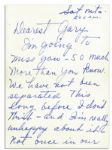 Sat. nite
Dearest Gary,
I'm going to
miss you - so much
more than you know.
We have not been
separated this
long before & I don't
think - and I'm really
unhappy about it
not once in our